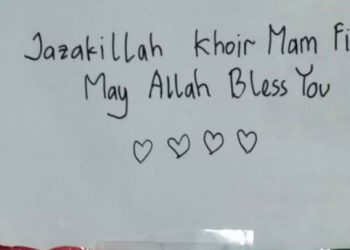 Jazakillah khoir Mam Fi
May Allah Bless You
♡ ♡ ♡ ♡